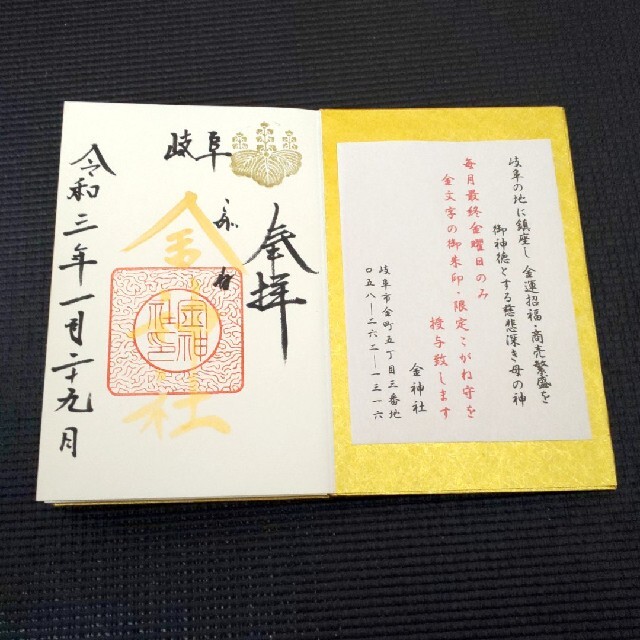 岐阜の地に鎮座し 金運招福・商売繁盛を
御神徳とする慈悲深き母の神
毎月最終金曜日のみ
金文字の御朱印・限定こがね守を
授与致します
金神社
岐阜市金町五丁目三番地
〇五八―二六二―一三一六
奉拝
岐阜
金神社
令和三年一月二十九日